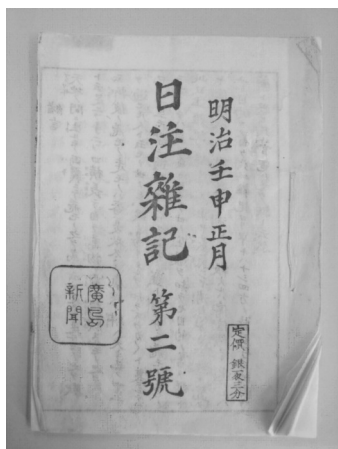 明治壬申正月
日注雜記 第二號
廣島
新聞
定價 銀五分